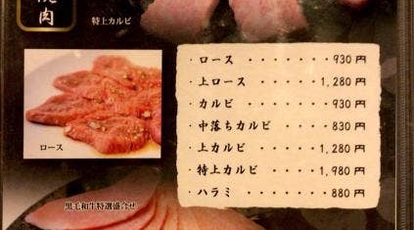 焼肉
特上カルビ
・ロース ・・・・・・・930円
・上ロース ・・・・・・1,280円
・カルビ ・・・・・・・930円
・中落ちカルビ ・・・・830円
・上カルビ ・・・・・・1,280円
・特上カルビ ・・・・・1,980円
・ハラミ ・・・・・・・880円
ロース
黒毛和牛特選盛合せ